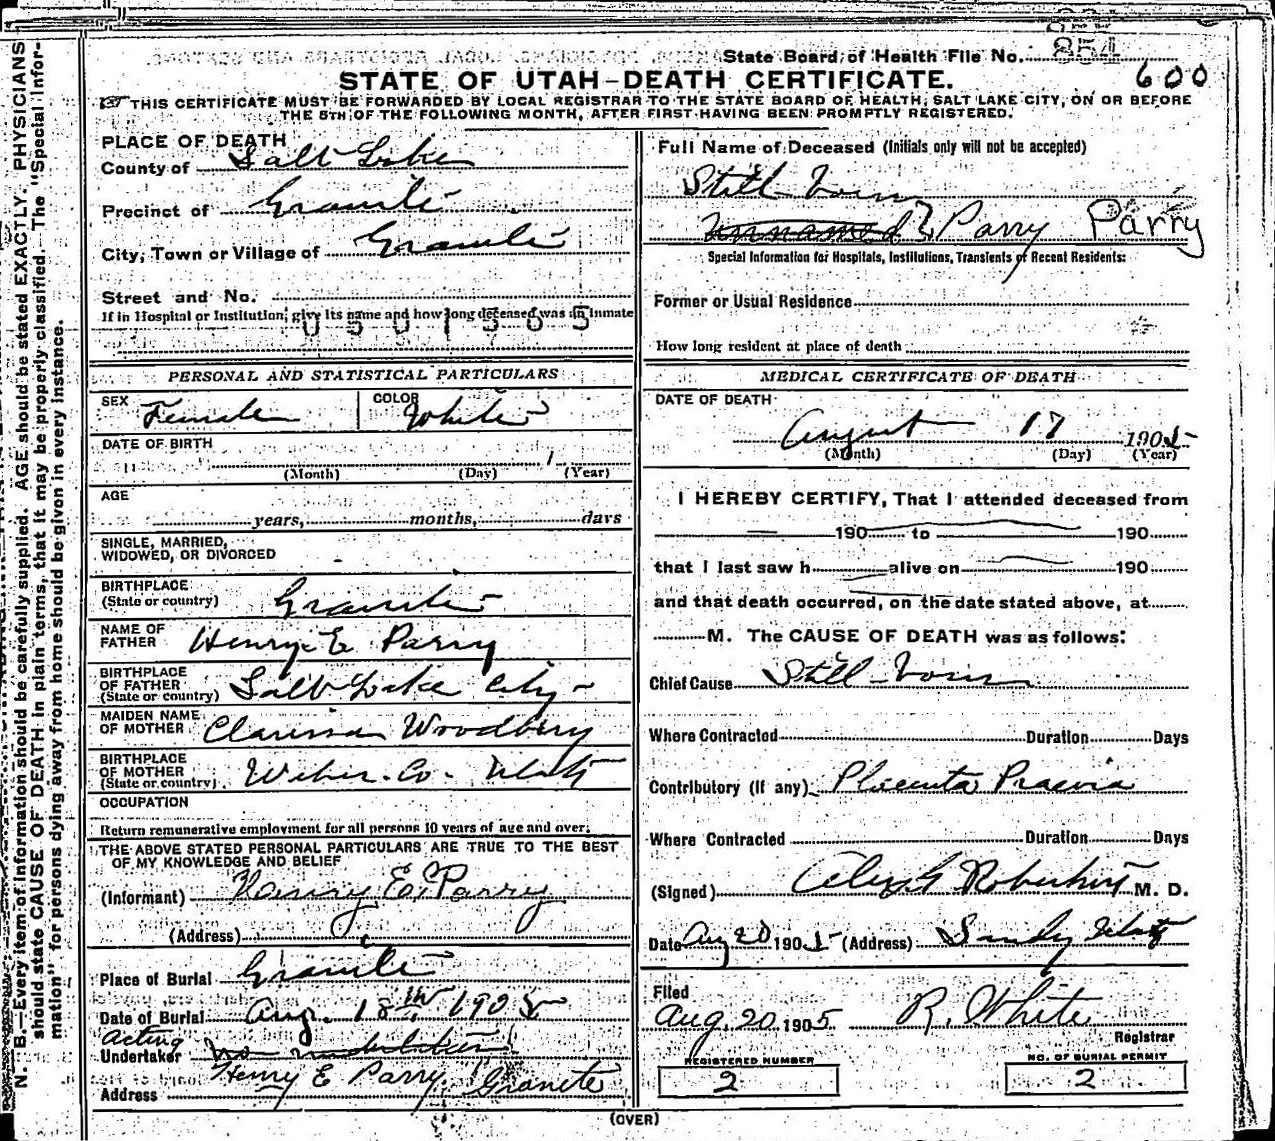 State Board of Health File No.
854
600
STATE OF UTAH-DEATH CERTIFICATE.
THIS CERTIFICATE MUST BE FORWARDED BY LOCAL REGISTRAR TO THE STATE BOARD OF HEALTH, SALT LAKE CITY, ON OR BEFORE
THE 5TH OF THE FOLLOWING MONTH, AFTER FIRST HAVING BEEN PROMPTLY REGISTERED.
PLACE OF DEATH
County of Salt Lake
Precinct of Granite
City, Town or Village of Granite
Street and No.
If in Hospital or Institution, give its name and how long deceased was an inmate
0501565
Full Name of Deceased (Initials only will not be accepted)
Still born
Unnamed Parry Parry
Special Information for Hospitals, Institutions, Transients or Recent Residents:
Former or Usual Residence
How long resident at place of death
PERSONAL AND STATISTICAL PARTICULARS
SEX Female COLOR White
DATE OF BIRTH
1
(Month) (Day) (Year)
AGE
years, months, days
SINGLE, MARRIED,
WIDOWED, OR DIVORCED -
BIRTHPLACE
(State or country) Granite
NAME OF
FATHER Henry E Parry
BIRTHPLACE
OF FATHER
(State or country) Salt Lake City
MAIDEN NAME
OF MOTHER Clarissa Woodbury
BIRTHPLACE
OF MOTHER
(State or country) Weber Co - Utah
OCCUPATION
Return remunerative employment for all persons 10 years of age and over.
THE ABOVE STATED PERSONAL PARTICULARS ARE TRUE TO THE BEST
OF MY KNOWLEDGE AND BELIEF
(Informant) Henry E Parry
(Address)
Place of Burial Granite
Date of Burial Aug. 18th 1905
Acting
Undertaker no undertaker
Henry E Parry. Granite
Address
MEDICAL CERTIFICATE OF DEATH
DATE OF DEATH
August 17 1905
(Month) (Day) (Year)
I HEREBY CERTIFY, That I attended deceased from
190 to 190
that I last saw h alive on 190
and that death occurred, on the date stated above, at
M. The CAUSE OF DEATH was as follows:
Chief Cause Still-born
Where Contracted Duration Days
Contributory (if any) Placenta Praevia
Where Contracted Duration Days
(Signed) M. D.
Date Aug 20 1905 (Address) Sandy Utah
Filed
Aug. 20 1905 R. White
Registrar
REGISTERED NUMBER
2
NO. OF BURIAL PERMIT
2
(OVER)
N. B.—Every item of information should be carefully supplied. AGE should be stated EXACTLY. PHYSICIANS
should state CAUSE OF DEATH in plain terms, that it may be properly classified. The "Special Infor-
mation" for persons dying away from home should be given in every instance.